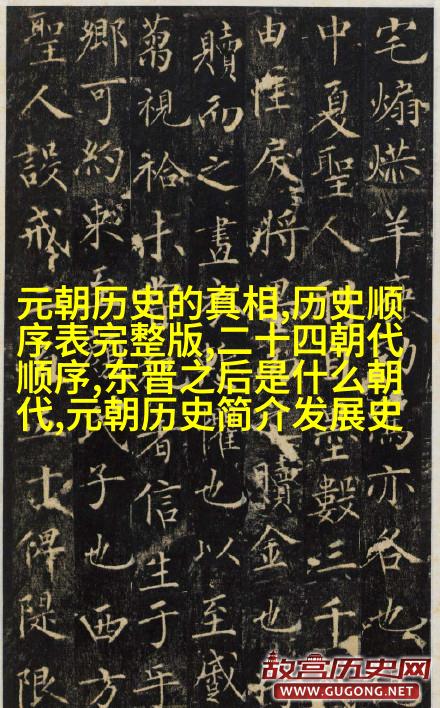 元朝历史的真相,历史顺
序表完整版,二十四朝代
顺序,东晋之后是什么朝
代,元朝历史简介发展史
宅煽羊亦各也
中夏聖人數三千
由惟戾將贖金也
贖而之晝也以至戚
視者信生于年
鄉可約束子也西方
聖人設戒士俾隄限
故宫历史网
WWW.GUGONG.NET